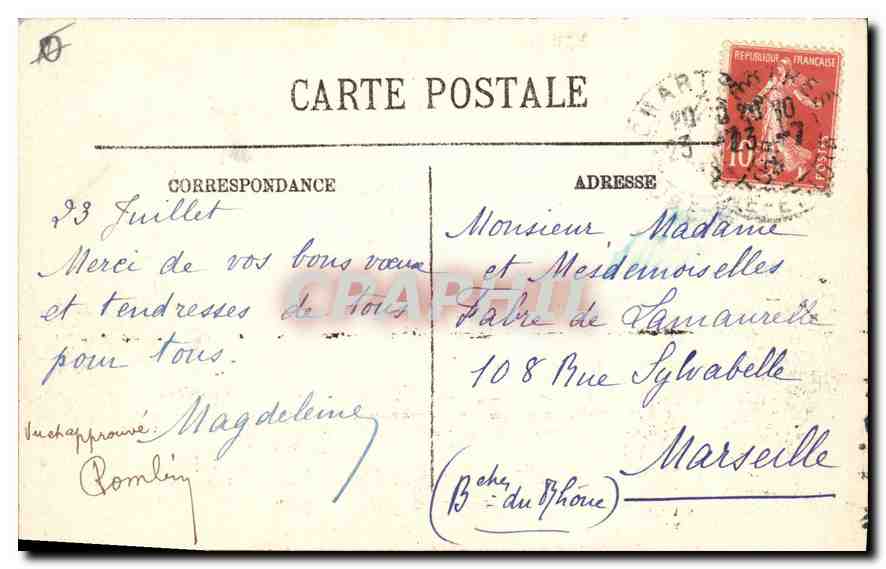 CARTE POSTALE
REPUBLIQUE FRANÇAISE
10
POSTES
CORRESPONDANCE
23 Juillet
Merci de vos bons vœux
et tendresses de tous
pour tous.
Magdeleine
Vu et approuvé.
ADRESSE
Monsieur Madame
et Mesdemoiselles
Fabre de Lamaurelle
108 Rue Sylvabelle
Marseille
(Bches du Rhône)
CPAPHIL